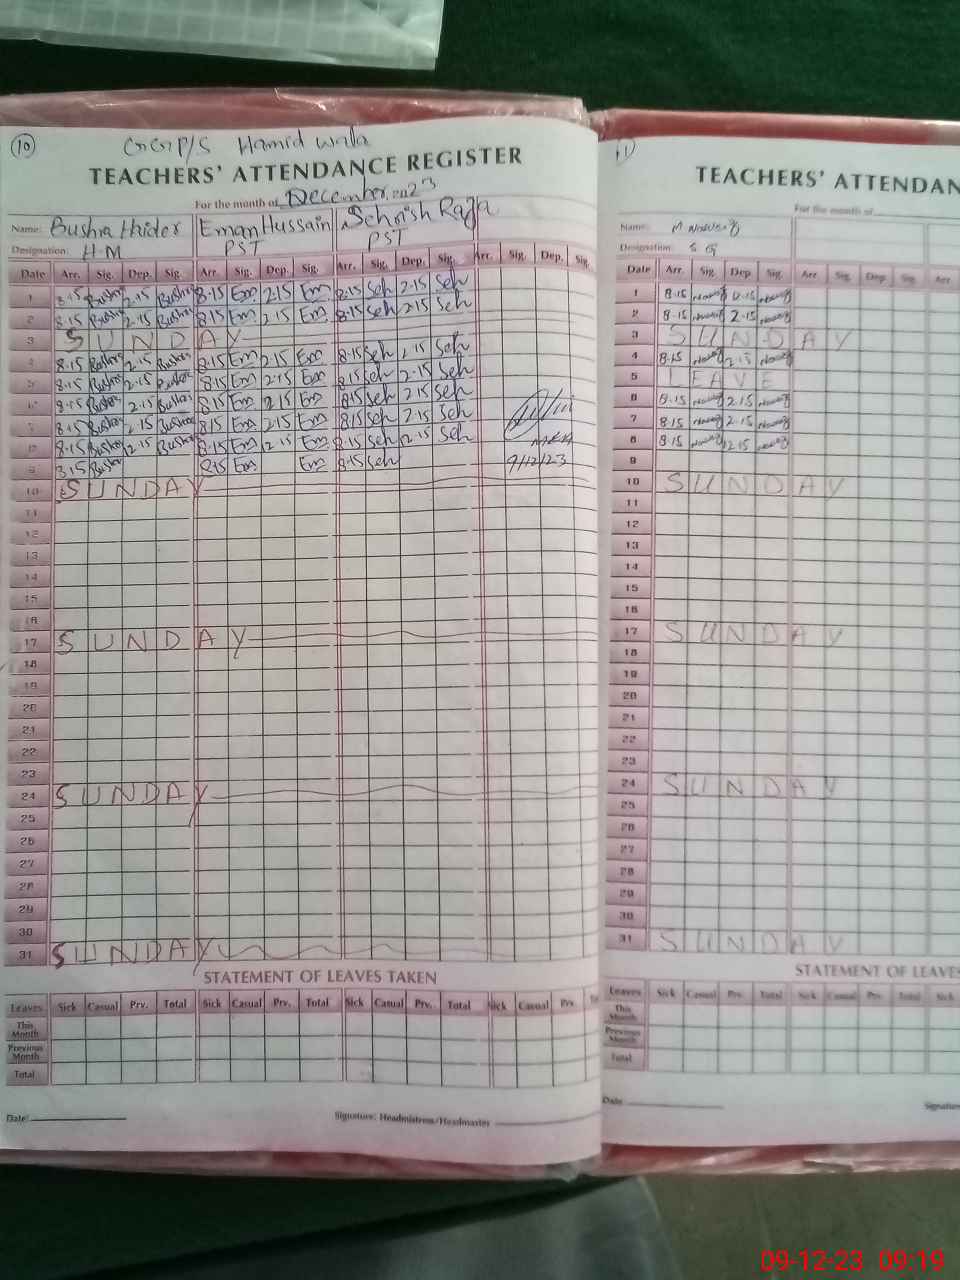 10
GGP/S Hamid Walla
TEACHERS' ATTENDANCE REGISTER
For the month of December, 2023
Name: Bushra Haider Eman Hussain Sehrish Raja
Designation: H-M PST PST
Date Arr. Sig. Dep. Sig. Arr. Sig. Dep. Sig. Arr. Sig. Dep. Sig. Arr. Sig. Dep. Sig.
1 8.15 Bushra 2.15 Bushra 8.15 Em 2.15 Em 8.15 Seh 2.15 Seh
2 8.15 Bushra 2.15 Bushra 8.15 Em 2.15 Em 8.15 Seh 2.15 Seh
3 SUNDAY
4 8.15 Bushra 2.15 Bushra 8.15 Em 2.15 Em 8.15 Seh 2.15 Seh
5 8.15 Bushra 2.15 Bushra 8.15 Em 2.15 Em 8.15 Seh 2.15 Seh
6 8.15 Bushra 2.15 Bushra 8.15 Em 2.15 Em 8.15 Seh 2.15 Seh
7 8.15 Bushra 2.15 Bushra 8.15 Em 2.15 Em 8.15 Seh 2.15 Seh
8 8.15 Bushra 2.15 Bushra 8.15 Em 2.15 Em 8.15 Seh 2.15 Seh
9 8.15 Bushra 8.15 Em Em 8.15 Seh 9/12/23
10 SUNDAY
11
12
13
14
15
16
17 SUNDAY
18
19
20
21
22
23
24 SUNDAY
25
26
27
28
29
30
31 SUNDAY
STATEMENT OF LEAVES TAKEN
Leaves Sick Casual Prv. Total Sick Casual Prv. Total Sick Casual Prv. Total Sick Casual Prv.
This Month
Previous Month
Total
Date: Signature: Headmistress/Headmaster
11
TEACHERS' ATTENDAN
For the month of
Name: M
Designation: S G
Date Arr. Sig. Dep. Sig. Arr. Sig. Dep. Sig. Arr
1 8.15 2.15
2 8.15 2.15
3 SUNDAY
4 8.15 2.15
5 LEAVE
6 8.15 2.15
7 8.15 2.15
8 8.15 2.15
9
10 SUNDAY
11
12
13
14
15
16
17 SUNDAY
18
19
20
21
22
23
24 SUNDAY
25
26
27
28
29
30
31 SUNDAY
STATEMENT OF LEAVES
Leaves Sick Casual Prv. Total Sick Casual Prv. Total Sick
This Month
Previous Month
Total
Date Signature
09-12-23 09:19